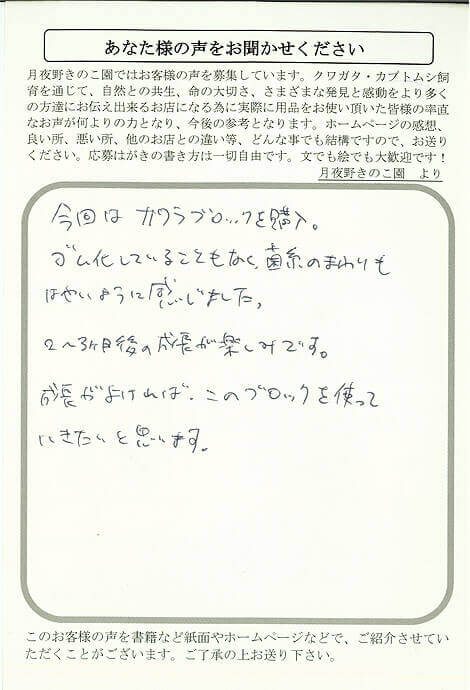 あなた様の声をお聞かせください
月夜野きのこ園ではお客様の声を募集しています。クワガタ・カブトムシ飼
育を通じて、自然との共生、命の大切さ、さまざまな発見と感動をより多く
の方達にお伝え出来るお店になる為に実際に用品をお使い頂いた皆様の率直
なお声が何よりの力となり、今後の参考となります。ホームページの感想、
良い所、悪い所、他のお店との違い等、どんな事でも結構ですので、お送り
ください。応募はがきの書き方は一切自由です。文でも絵でも大歓迎です！
月夜野きのこ園　より
今回は カワラブロックを購入。
ゴム化していることもなく、菌糸のまわりも
はやいように感じました。
2～3ヶ月後の成長が楽しみです。
成長がよければ、このブロックを使って
いきたいと思います。
このお客様の声を書籍など紙面やホームページなどで、ご紹介させてい
ただくことがございます。ご了承の上お送り下さい。